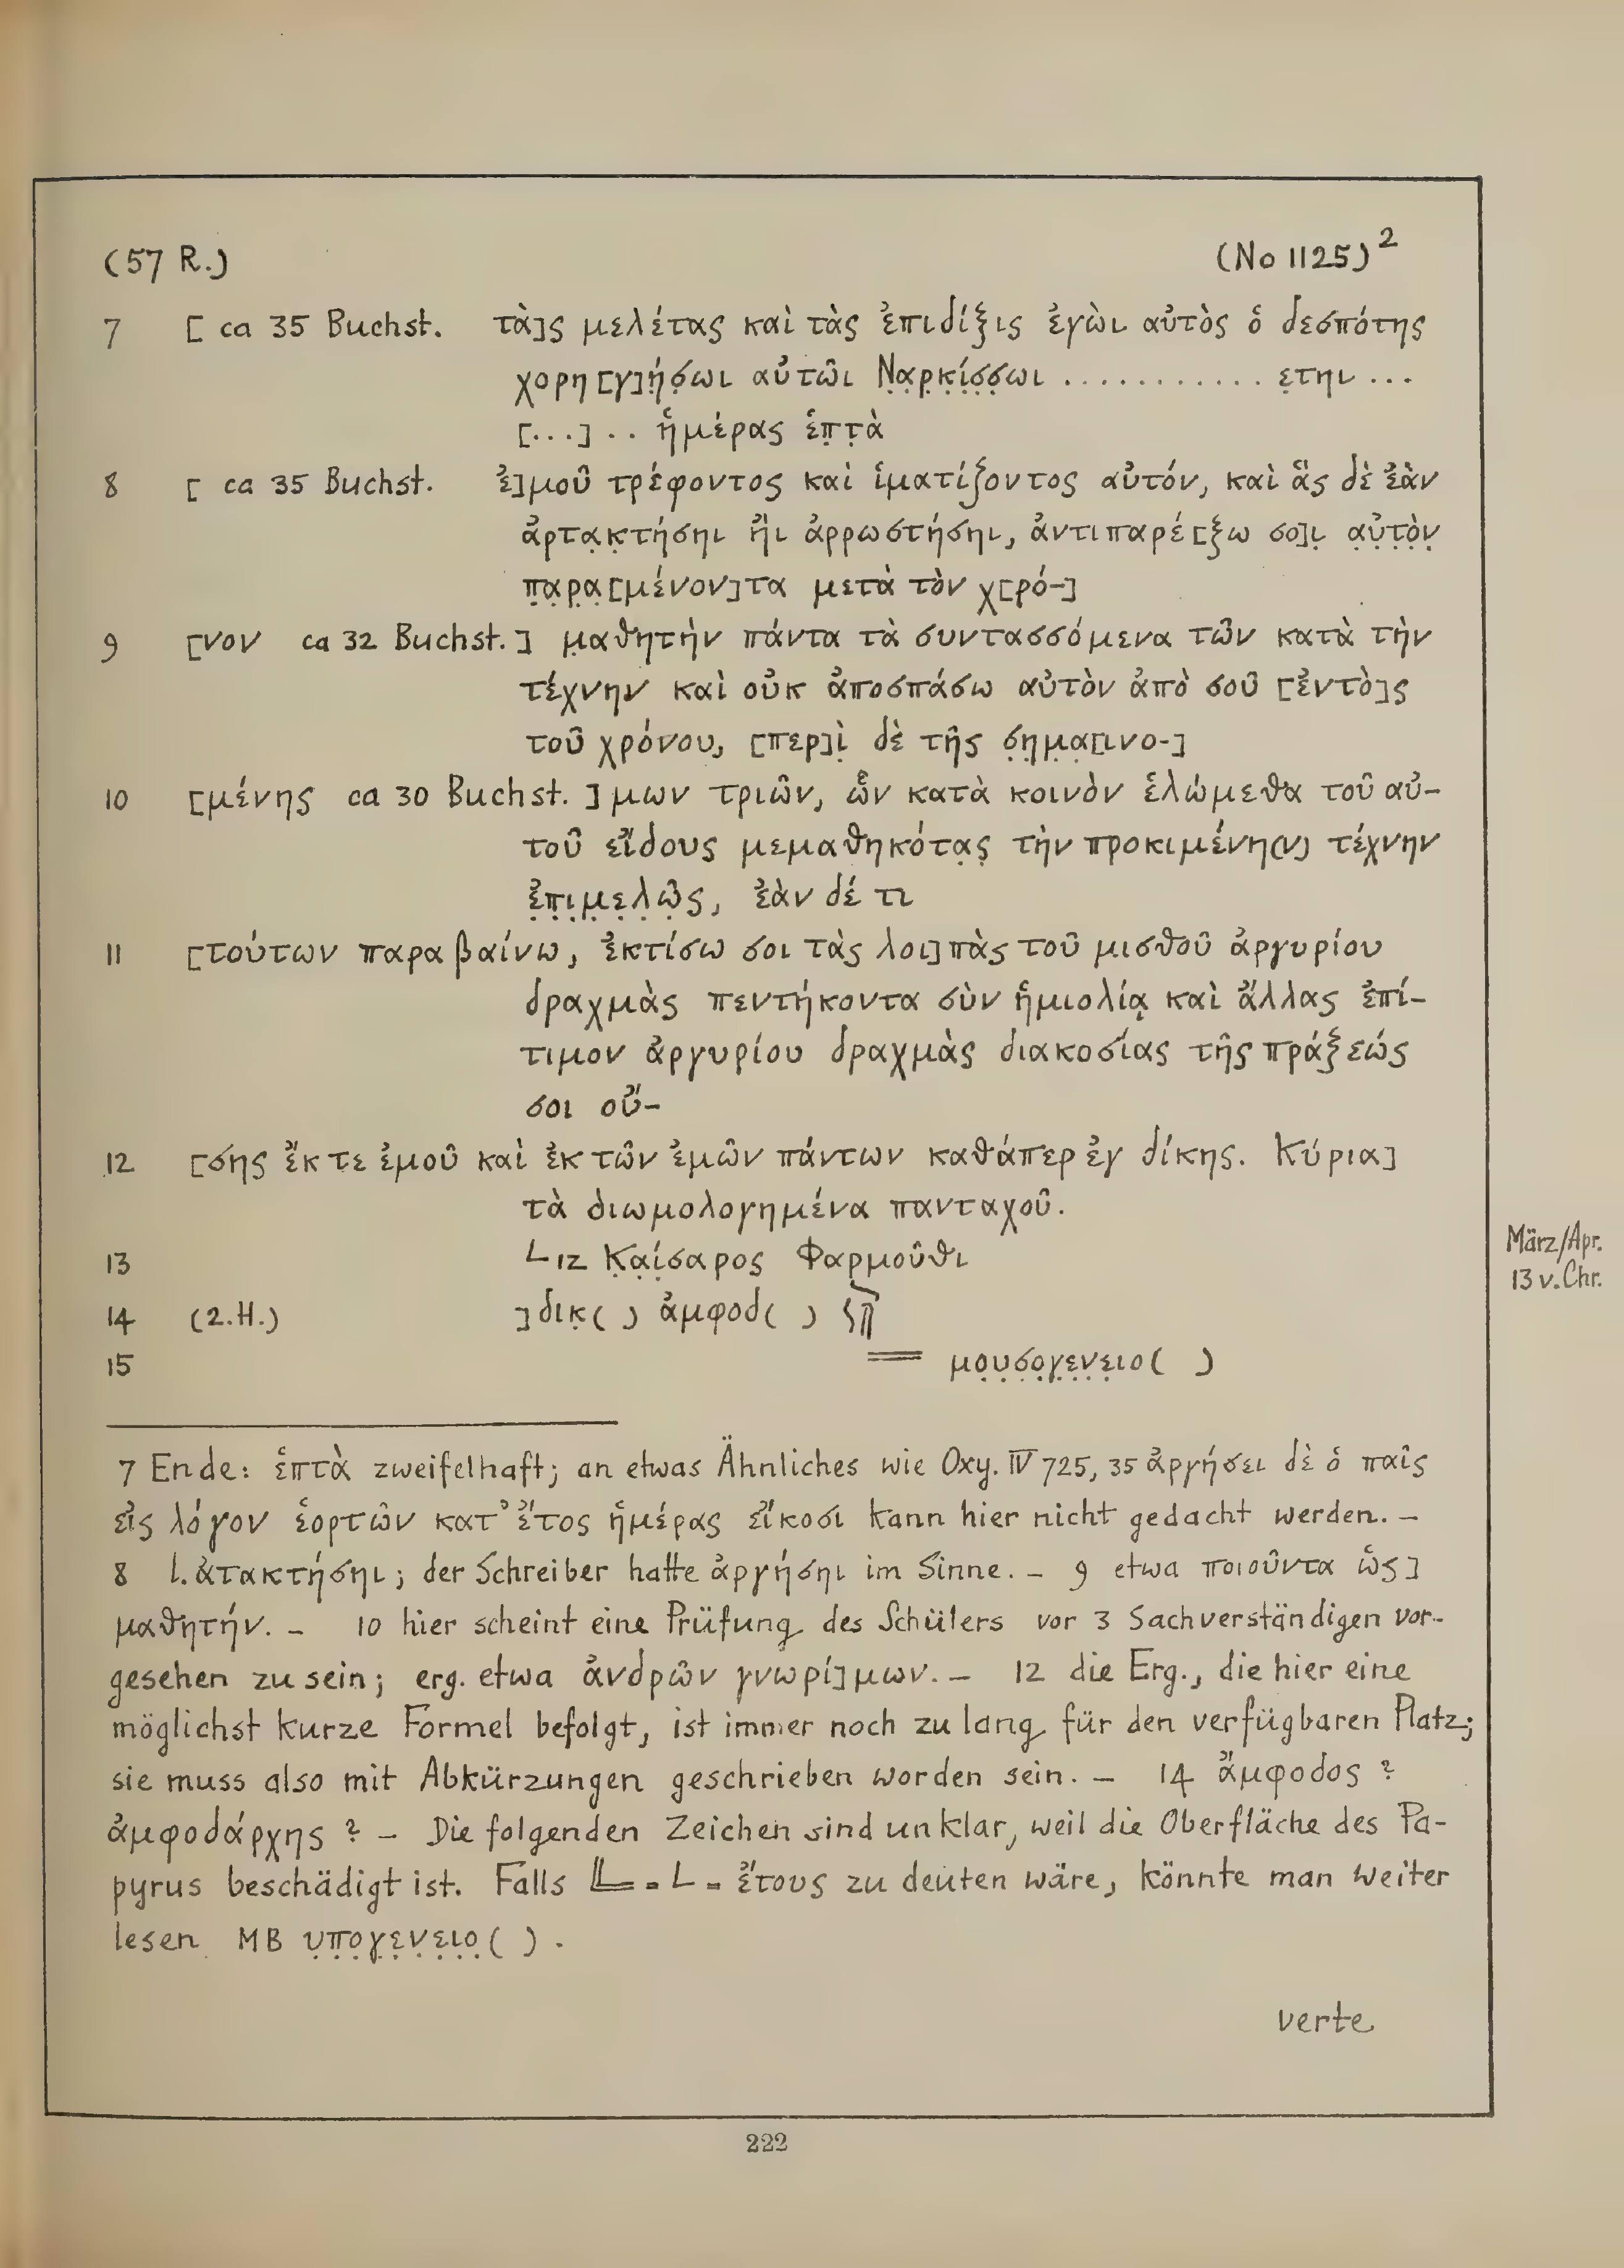 (57 R.) (No 1125)²
7 [ ca 35 Buchst. τὰ]ς μελέτας καὶ τὰς ἐπιδίξις ἐγὼι αὐτὸς ὁ δεσπότης
χορη[γ]ή̣σ̣ωι αὐτῶι Ν̣α̣ρ̣κ̣ί̣σ̣σ̣ωι ........... ε̣τηι ...
[...] .. ἡμέρας ἑπ̣τ̣ὰ
8 [ ca 35 Buchst. ἐ]μοῦ τρέφοντος καὶ ἱματίζοντος αὐτόν, καὶ ἃς δὲ ἐὰν
ἀρτα̣κ̣τήσηι ἢι ἀρρωστήσηι, ἀντιπαρέ[ξω σο]ι̣ α̣ὐ̣τ̣ὸ̣ν̣
π̣α̣ρ̣α̣[μένον]τα μετὰ τὸν χ[ρό-]
9 [νον ca 32 Buchst. ] μ̣αθητὴν πάντα τὰ συντασσόμενα τῶν κατὰ τὴν
τέχνην καὶ οὐκ ἀποσπάσω αὐτὸν ἀπὸ σοῦ [ἐντὸ]ς
τοῦ χρόνου, [περ]ὶ̣ δὲ τῆς σ̣η̣μ̣α̣[ινο-]
10 [μένης ca 30 Buchst. ] μων τριῶν, ὧν κατὰ κοινὸν ἑλώμεθα τοῦ αὐ-
τοῦ εἴδους μεμαθηκότα̣ς̣ τὴν προκιμένη(ν) τέχνην
ἐ̣π̣ι̣μ̣ε̣λ̣ῶ̣ς, ἐὰν δέ τι
11 [τούτων παραβαίνω, ἐκτίσω σοι τὰς λοι]πὰς τοῦ μισθοῦ ἀργυρίου
δραχμὰς πεντήκοντα σὺν ἡμιολίᾳ καὶ ἄλλας ἐπί-
τιμον ἀργυρίου δραχμὰς διακοσίας τῆς πράξεώς
σοι οὔ-
12 [σης ἔκ τε ἐμοῦ καὶ ἐκ τῶν ἐμῶν πάντων καθάπερ ἐγ δίκης. Κύρια]
τὰ διωμολογημένα πανταχοῦ.
13 L ιζ Κ̣α̣ί̣σαρος Φαρμοῦθι
März/Apr.
13 v. Chr.
14 (2. H.) ] δικ̣( ) ἀμφοδ( )
15 μο̣υ̣σ̣ο̣γ̣ε̣ν̣ε̣ιο( )
7 Ende: ἑπτὰ zweifelhaft; an etwas Ähnliches wie Oxy. IV 725, 35 ἀργήσει δὲ ὁ παῖς
εἰς λόγον ἑορτῶν κατ᾽ ἔτος ἡμέρας εἴκοσι kann hier nicht gedacht werden. –
8 l. ἀτακτήσηι; der Schreiber hatte ἀργήσηι im Sinne. – 9 etwa ποιοῦντα ὡς ]
μαθητήν. – 10 hier scheint eine Prüfung des Schülers vor 3 Sachverständigen vor-
gesehen zu sein; erg. etwa ἀνδρῶν γνωρί]μων. – 12 die Erg., die hier eine
möglichst kurze Formel befolgt, ist immer noch zu lang für den verfügbaren Platz;
sie muss also mit Abkürzungen geschrieben worden sein. – 14 ἄμφοδος ?
ἀμφοδάρχης ? – Die folgenden Zeichen sind unklar, weil die Oberfläche des Pa-
pyrus beschädigt ist. Falls = L = ἔτους zu deuten wäre, könnte man weiter
lesen MB υ̣π̣ο̣γ̣ε̣ν̣ε̣ι̣ο̣( ) .
verte
222